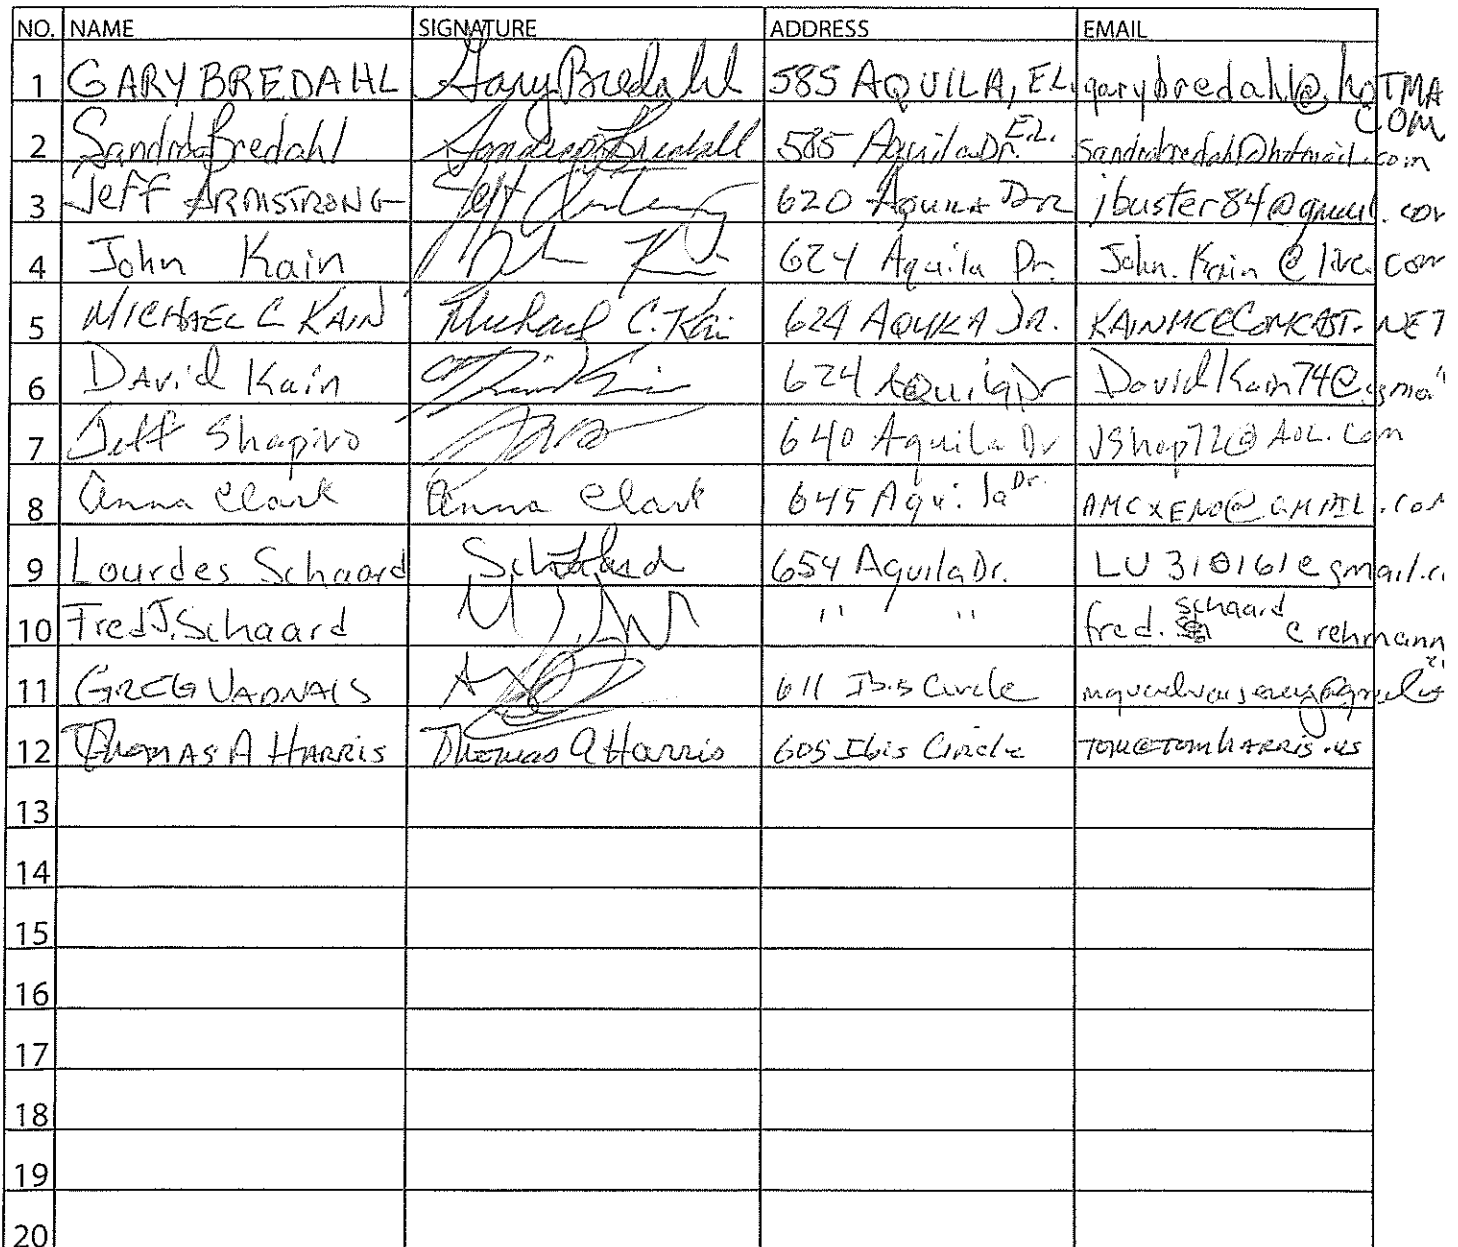 NO. NAME SIGNATURE ADDRESS EMAIL
1 GARY BREDAHL Gary Bredahl 585 AQUILA, EL. garybredahl@hoTMA
COM
2 Sandra Bredahl Bredahl 585 Aquila Dr. E.L. sandrabredahl@hotmail.com
3 Jeff ARMSTRONG Jeff 620 AQUILA DR jbuster84@gmail.com
4 John Kain 624 Aquila Dr. John.Kain@live.com
5 MICHAEL C KAIN Michael C. Kain 624 AQUILA DR. KAINMC@COMCAST.NET
6 David Kain 624 AQuila Dr DavidKain74@gmai
7 Jeff Shapiro 640 Aquila Dr JShap72@AOL.Com
8 Anna Clark Anna Clark 645 Aquila Dr. AMCXENO@GMAIL.COM
9 Lourdes Schaard Schaard 654 Aquila Dr. LU310161@gmail.c
10 Fred J. Schaard " " fred.schaard@rehmann
11 GREG VADNAIS 611 Ibis Circle
12 THOMAS A HARRIS Thomas A Harris 605 Ibis Circle TOM@TOMHARRIS.US
13
14
15
16
17
18
19
20